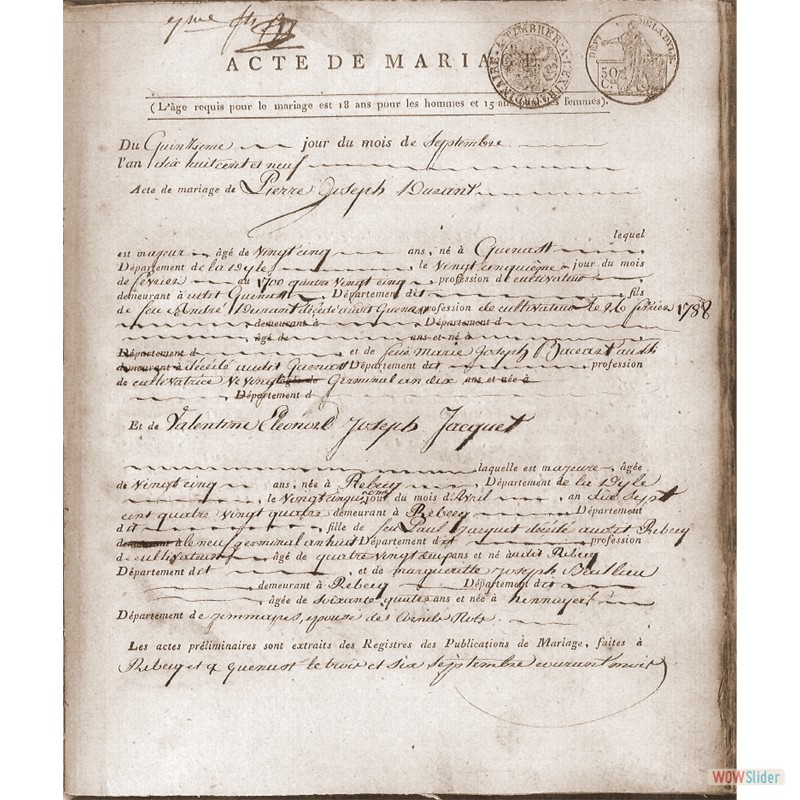 ACTE DE MARIAGE
A TIMBRER A L'EXTRAORDINAIRE
DEPT DE LA DYLE
50 C.
(L'âge requis pour le mariage est 18 ans pour les hommes et 15 ans les femmes).
Du Quinzieme jour du mois de Septembre
l'an dix huit cent et neuf
Acte de mariage de Pierre Joseph Durant
lequel
est majeur âgé de Vingt cinq ans, né à Quenast
Département de la Dyle le Vingt cinquieme jour du mois
de février an 1700 quatre vingt cinq profession de cultivateur
demeurant à udit Quenast Département dit fils
de feu André Durant décédé audit Quenast profession de cultivateur le 26 février 1788
demeurant à Département d
âgé de ans et né à
Département d et de feue Marie Joseph aussi
demeurant à décédé audit Quenast Département dit profession
de cultivatrice le Vingt âgée de Germinal an dix ans et née à
Département d
Et de Valentine Eleonore Joseph Jacquet
laquelle est majeure âgée
de Vingt cinq ans, née à Rebecq Département de la Dyle
le Vingt cinquieme jour du mois d'Avril an dix sept
cent quatre vingt quatre demeurant à Rebecq Département
dit fille de feu Paul Jacquet décédé audit Rebecq
demeurant à le neuf germinal an huit Département dit profession
de cultivateur âgé de quatre vingt deux ans et né audit Rebecq
Département dit et de marguerite Joseph
demeurant à Rebecq Département dit
âgée de soixante quatre ans et née à hennuyeres
Département de jemmapes, epouse de
Les actes préliminaires sont extraits des Registres des Publications de Mariage, faites à
Rebecq et à quenast le trois et six Septembre courant mois
WOWSlider